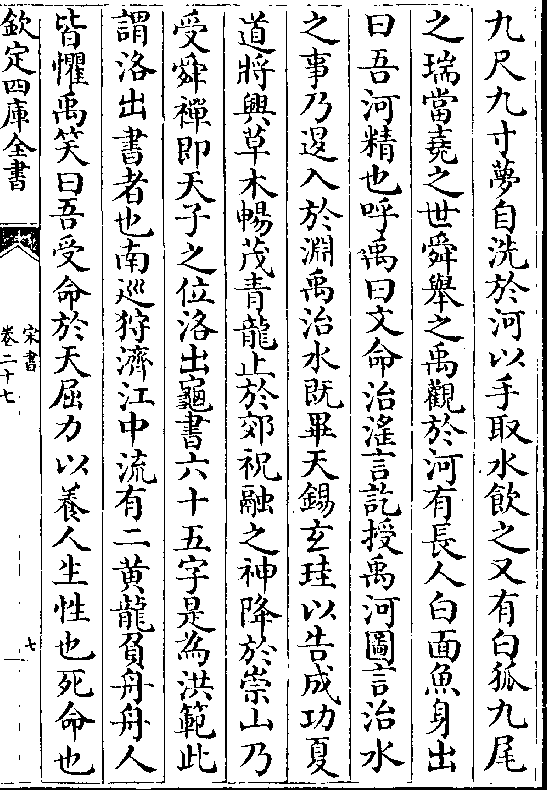 九尺九寸夢自洗於河以手取水飲之又有白狐九尾
之瑞當堯之世舜舉之禹觀於河有長人白面魚身出
曰吾河精也呼禹曰文命治滛言訖授禹河圖言治水
之事乃退入於淵禹治水既畢天錫玄珪以告成功夏
道將興草木暢茂青龍止於郊祝融之神降於崇山乃
受舜禪即天子之位洛出龜書六十五字是為洪範此
謂洛出書者也南巡狩濟江中流有二黄龍負舟舟人
皆懼禹笑曰吾受命於天屈力以養人生性也死命也
欽定四庫全書
宋書
卷二十七
七